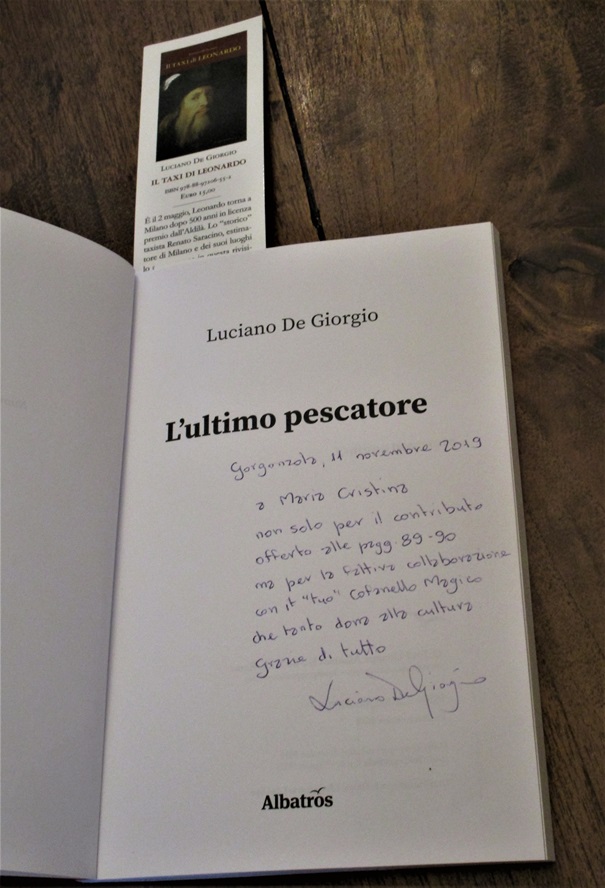 IL TAXI DI LEONARDO
LUCIANO DE GIORGIO
IL TAXI DI LEONARDO
EURO 15,00
È il 2 maggio, Leonardo torna a
Milano dopo 500 anni in licenza
premio dall'Aldilà. Lo "storico"
taxista Renato Saracino, estima-
tore di Milano e dei suoi luoghi
Luciano De Giorgio
L'ultimo pescatore
Gorgonzola, 11 novembre 2019
a Maria Cristina
non solo per il contributo
offerto alle pagg. 89-90
ma per la fattiva collaborazione
con il "tuo" Cofanetto Magico
che tanto dona alla cultura
Grazie di tutto
Luciano De Giorgio
Albatros